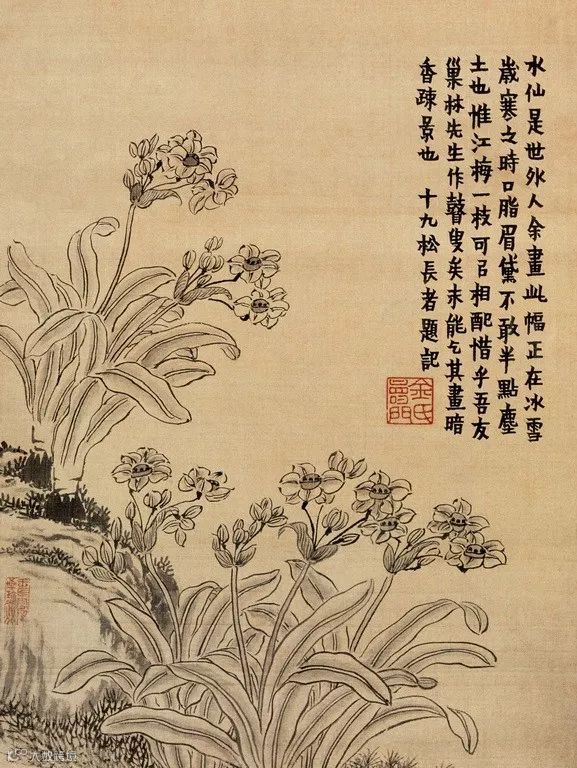 水仙是世外人余畫此幅正在冰雪
歲寒之時口脂眉黛不敢半點塵
土也惟江梅一枝可㠯相配惜乎吾友
巢林先生作瞽叟矣未能乞其畫暗
香疎景也 十九松長者題記
金氏